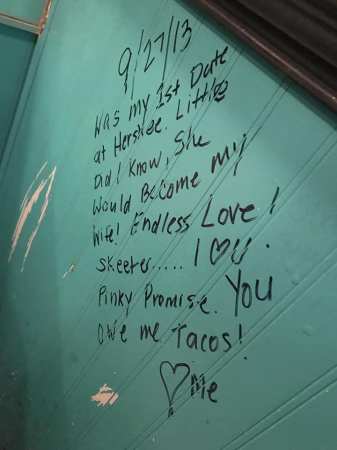 9/27/13
Was my 1st Date
at Hershee. Little
Did I Know, She
Would Become my
Wife! Endless Love!
Skeeter..... I ♡ U.
Pinky Promise. You
Owe me Tacos!
♡ Me